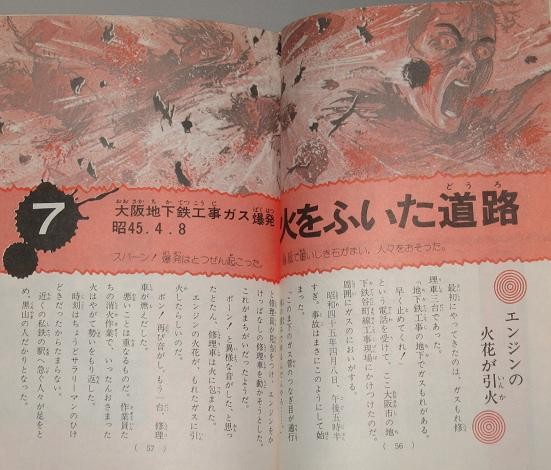 7
大阪地下鉄工事ガス爆発
おおさかちかてつこうじ
ばくはつ
昭45.4.8
火をふいた道路
どうろ
ズバーン！爆発はとつぜん起こった。
しき石がまい、人々をおそった。
エンジンの
火花が引火
いんか
最初にやってきたのは、ガスもれ修
理車三台であった。
「地下鉄工事の地下でガスもれがある。
早く止めてくれ」
という電話を受けて、ここ大阪市の地
下鉄谷町線工事現場にかけつけたのだ。
周囲にガスのにおいがする。
昭和四十五年四月八日、午後五時半
すぎ、事故はまさにこのようにして始
まった。
このま下のガス管のつなぎ目が通行
と修理員が見当をつけ、エンジンをか
けっぱなしの修理車を動かそうとした。
これがまちがいだったようだ。
ボーン！と異様な音がした、と思っ
たとたん、修理車は火に包まれた。
エンジンの火花が、もれたガスに引
火したらしいのだ。
ボン！再び音がし、もう一台、修理
車が燃えだした。
悪いことは重なるものだ。作業員た
ちの消火作業で、いったんおさまった
火はやがて勢いをもり返した。
時刻はちょうどサラリーマンのひけ
どきだったからたまらない。
近くの私鉄の駅へ急ぐ人々が足をと
め、黒山の人だかりとなった。
( 57 )
( 56 )